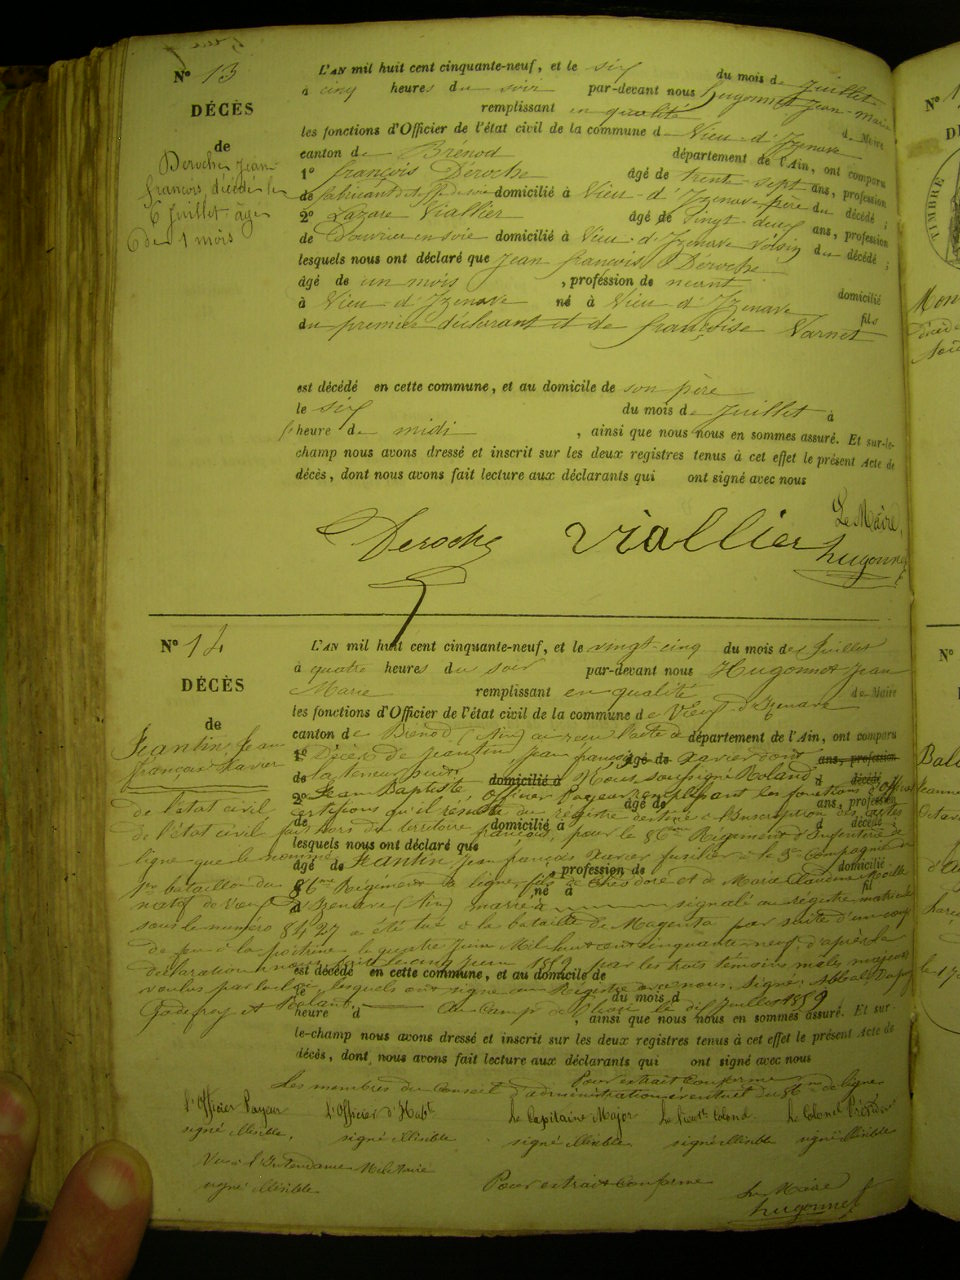 N° 13
DÉCÈS
de
Deroche Jean
françois décédé le
6 juillet âgé
de 1 mois
L'AN mil huit cent cinquante-neuf, et le six du mois de Juillet
à cinq heures du soir par-devant nous hugonnet Jean-Marie
remplissant en qualité de Maire
les fonctions d'Officier de l'état civil de la commune d Vieu-d'Izenave
canton de Brénod département de l'Ain, ont comparu
1° françois Deroche âgé de trente-sept ans, profession
de fabricant d'étoffe de soie domicilié à Vieu-d'Izenave père du décédé ;
2° Lazare Viallier âgé de vingt-deux ans, profession
de ouvrier en soie domicilié à Vieu-d'Izenave voisin du décédé ;
lesquels nous ont déclaré que Jean françois Déroche
âgé de un mois , profession de néant domicilié
à Vieu-d'Izenave né à Vieu-d'Izenave fils
du premier déclarant et de françoise Varnet
est décédé en cette commune, et au domicile de son père
le six du mois de Juillet à
heure de midi , ainsi que nous nous en sommes assuré. Et sur-le-
champ nous avons dressé et inscrit sur les deux registres tenus à cet effet le présent Acte de
décès, dont nous avons fait lecture aux déclarants qui ont signé avec nous
Le Maire,
Deroche Viallier hugonnet
N° 14
DÉCÈS
de
Jeantin Jean
françois Xavier
L'AN mil huit cent cinquante-neuf, et le vingt-cinq du mois de Juillet
à quatre heures du soir par-devant nous Hugonnet Jean
Marie remplissant en qualité de Maire
les fonctions d'Officier de l'état civil de la commune de Vieu d'Izenave
canton de Brénod (Ain) avons reçu l'acte de département de l'Ain, ont comparu
1° Décès de Jeantin Jean françois âgé de Xavier dont ans, profession
de la teneur suit domicilié à Nous soussigné Roland à décédé
2° Jean Baptiste, Officier Payeur remplissant les fonctions d'officier âgé de ans, profession
de l'état civil, certifions qu'il résulte du registre destiné à l'Inscription des actes
de l'état civil faits hors du territoire français, pour le 86me Régiment d'Infanterie de de domicilié à décédé
lesquels nous ont déclaré que
ligne que le nommé Jeantin, Jean françois Xavier fusilier, le 3e Compagnie âgé de profession de domicilié
1er bataillon du 86me Régiment de ligne, fils de Théodore et de Marie Claudine né à fil
natif de Vieu d'Izenave (Ain) marié à signalé au registre matricule
sous le numéro 8427 a été tué à la bataille de Magenta par suite d'un coup
de feu à la poitrine le quatre Juin Mil huit cent cinquante neuf d'après la
déclaration à nous faite le cinq Juin 1859 par les trois témoins mâles majeurs
est décédé en cette commune, et au domicile de
voulus par la loi, lesquels ont signé au Registre avec nous. Signé:
le du mois d
Godefroy et Roland. Au Camp de le dix Juillet 1859
heure d , ainsi que nous nous en sommes assuré. Et sur
le-champ nous avons dressé et inscrit sur les deux registres tenus à cet effet le présent Acte de
décès, dont nous avons fait lecture aux déclarants qui ont signé avec nous
Pour extrait conforme
Les membres du Conseil d'administration éventuel du 86me de ligne
l'Officier Payeur l'Officier d'Habt Le Capitaine Major Le Lieutt Colonel Le Colonel Président
signé illisible, signé illisible signé illisible signé illisible signé illisible
Vu à l'Intendance Militaire
signé illisible Pour extrait conforme
Le Maire
hugonnet
N°
TIMBRE
N°